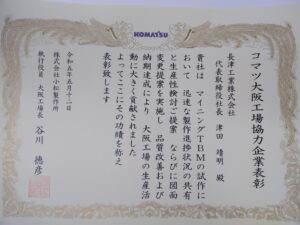 KOMATSU
コマツ大阪工場協力企業表彰
長津工業株式会社
代表取締役社長 津田 靖明 殿
貴社は マイニングTBMの試作に
おいて 迅速な製作進捗状況の共有
と生産性検討ご提案 ならびに図面
変更提案を実施し 品質改善および
納期達成により 大阪工場の生産活
動に大きく貢献されました
よってここにその功績を称え
表彰致します
令和五年五月十二日
株式会社小松製作所
執行役員 大阪工場長 谷川 徳彦